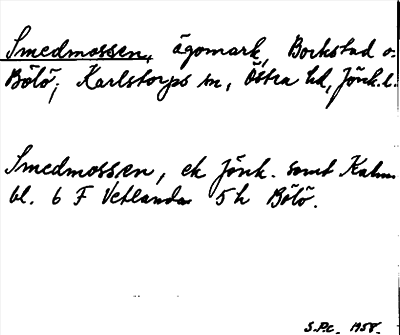 Smedmossen, ägomark, Bockstad o.
Bölö, Karlstorps sn, Östra hd, Jönk.l.
Smedmossen, ek Jönk. samt Kalm.
bl. 6 F Vetlanda 5h Bölö.
S.P.c. 1958.